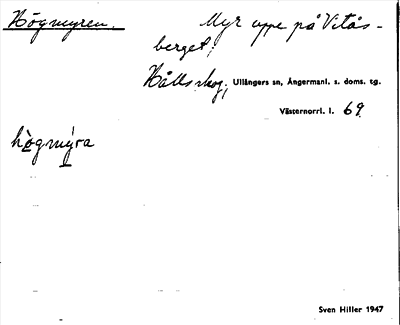 Högmyren. Myr uppe på Vitås-
berget;
Hålls skog; Ullångers sn, Ångermanl. s. doms. tg.
Västernorrl. l. 69
hògmýra
Sven Hiller 1947